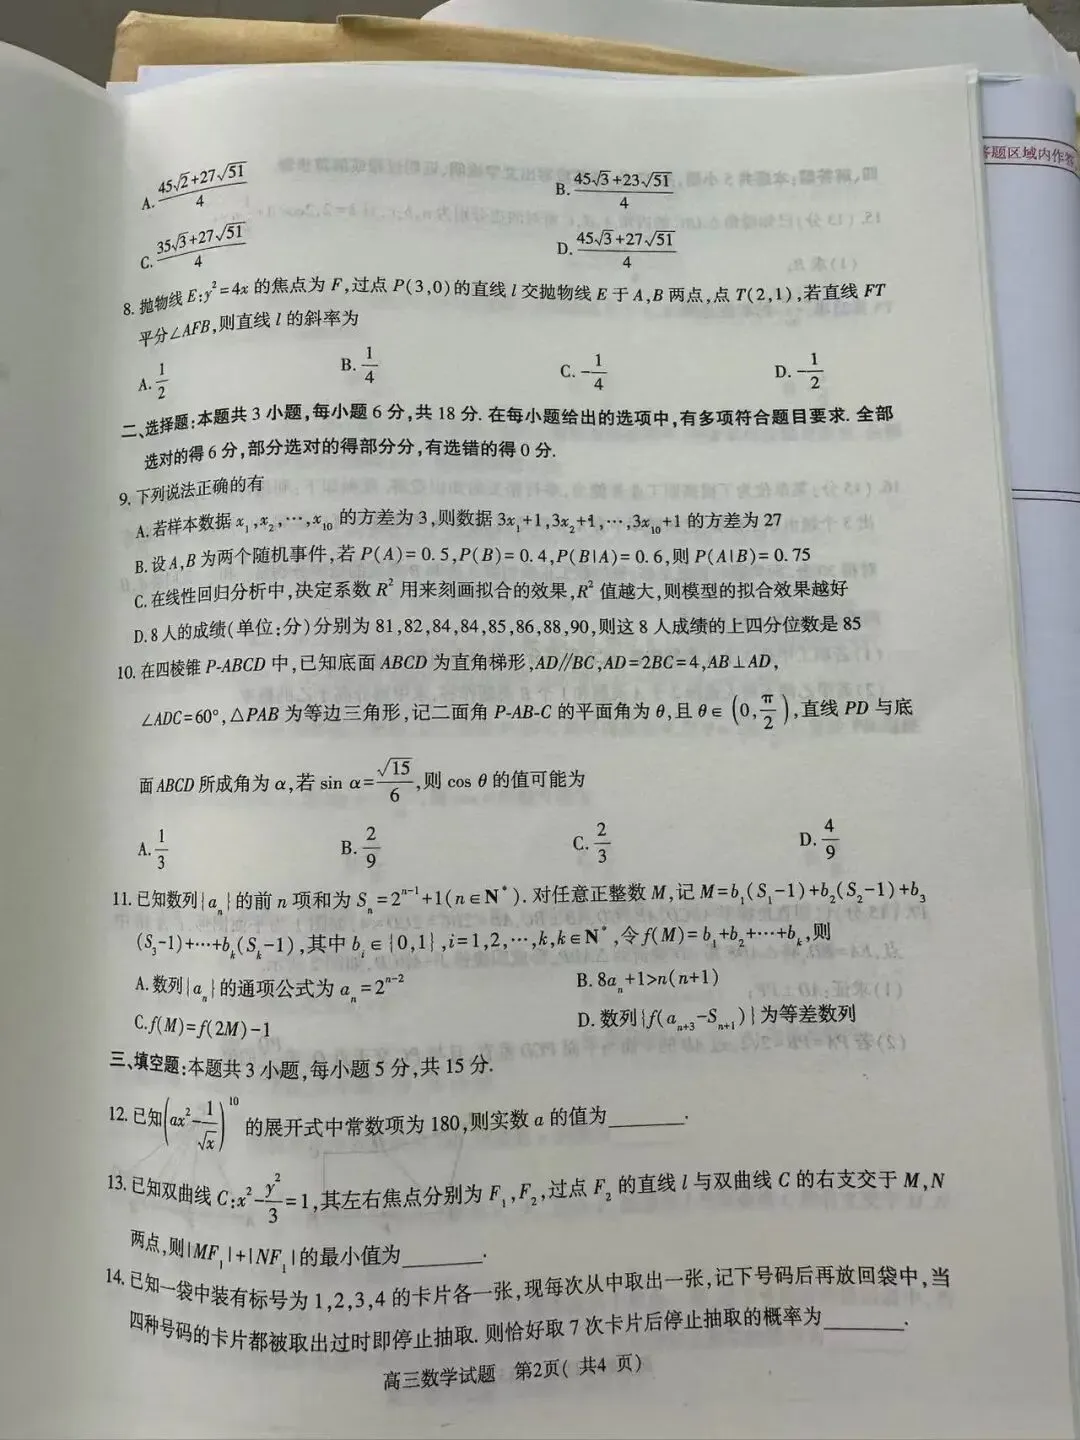 答题区域内作答
A. \frac{45\sqrt{2}+27\sqrt{51}}{4} B. \frac{45\sqrt{3}+23\sqrt{51}}{4}
C. \frac{35\sqrt{3}+27\sqrt{51}}{4} D. \frac{45\sqrt{3}+27\sqrt{51}}{4}
8. 抛物线 E:y²=4x 的焦点为 F,过点 P(3,0)的直线 l 交抛物线 E 于 A,B 两点,点 T(2,1),若直线 FT
平分∠AFB,则直线 l 的斜率为
A. \frac{1}{2} B. \frac{1}{4} C. -\frac{1}{4} D. -\frac{1}{2}
二、选择题:本题共 3 小题,每小题 6 分,共 18 分. 在每小题给出的选项中,有多项符合题目要求. 全部
选对的得 6 分,部分选对的得部分分,有选错的得 0 分.
9. 下列说法正确的有
A. 若样本数据 x₁,x₂,…,x₁₀ 的方差为 3,则数据 3x₁+1,3x₂+1,…,3x₁₀+1 的方差为 27
B. 设 A,B 为两个随机事件,若 P(A)=0.5,P(B)=0.4,P(B|A)=0.6,则 P(A|B)=0.75
C. 在线性回归分析中,决定系数 R² 用来刻画拟合的效果,R² 值越大,则模型的拟合效果越好
D. 8 人的成绩(单位:分)分别为 81,82,84,84,85,86,88,90,则这 8 人成绩的上四分位数是 85
10. 在四棱锥 P-ABCD 中,已知底面 ABCD 为直角梯形,AD∥BC,AD=2BC=4,AB⊥AD,
∠ADC=60°,△PAB 为等边三角形,记二面角 P-AB-C 的平面角为 θ,且 θ∈(0,\frac{π}{2}),直线 PD 与底
面 ABCD 所成角为 α,若 sin α=\frac{\sqrt{15}}{6},则 cos θ 的值可能为
A. \frac{1}{3} B. \frac{2}{9} C. \frac{2}{3} D. \frac{4}{9}
11. 已知数列{aₙ}的前 n 项和为 Sₙ=2ⁿ⁻¹+1(n∈N*). 对任意正整数 M,记 M=b₁(S₁-1)+b₂(S₂-1)+b₃
(S₃-1)+…+bₖ(Sₖ-1),其中 bᵢ∈{0,1},i=1,2,…,k,k∈N*,令 f(M)=b₁+b₂+…+bₖ,则
A. 数列{aₙ}的通项公式为 aₙ=2ⁿ⁻² B. 8aₙ+1>n(n+1)
C. f(M)=f(2M)-1 D. 数列{f(aₙ₊₃-Sₙ₊₁)}为等差数列
三、填空题:本题共 3 小题,每小题 5 分,共 15 分.
12. 已知(ax²-\frac{1}{\sqrt{x}})¹⁰的展开式中常数项为 180,则实数 a 的值为________.
13. 已知双曲线 C:x²-\frac{y²}{3}=1,其左右焦点分别为 F₁,F₂,过点 F₂ 的直线 l 与双曲线 C 的右支交于 M,N
两点,则|MF₁|+|NF₁|的最小值为________.
14. 已知一袋中装有标号为 1,2,3,4 的卡片各一张,现每次从中取出一张,记下号码后再放回袋中,当
四种号码的卡片都被取出过时即停止抽取. 则恰好取 7 次卡片后停止抽取的概率为________.
高三数学试题 第2页( 共4 页)